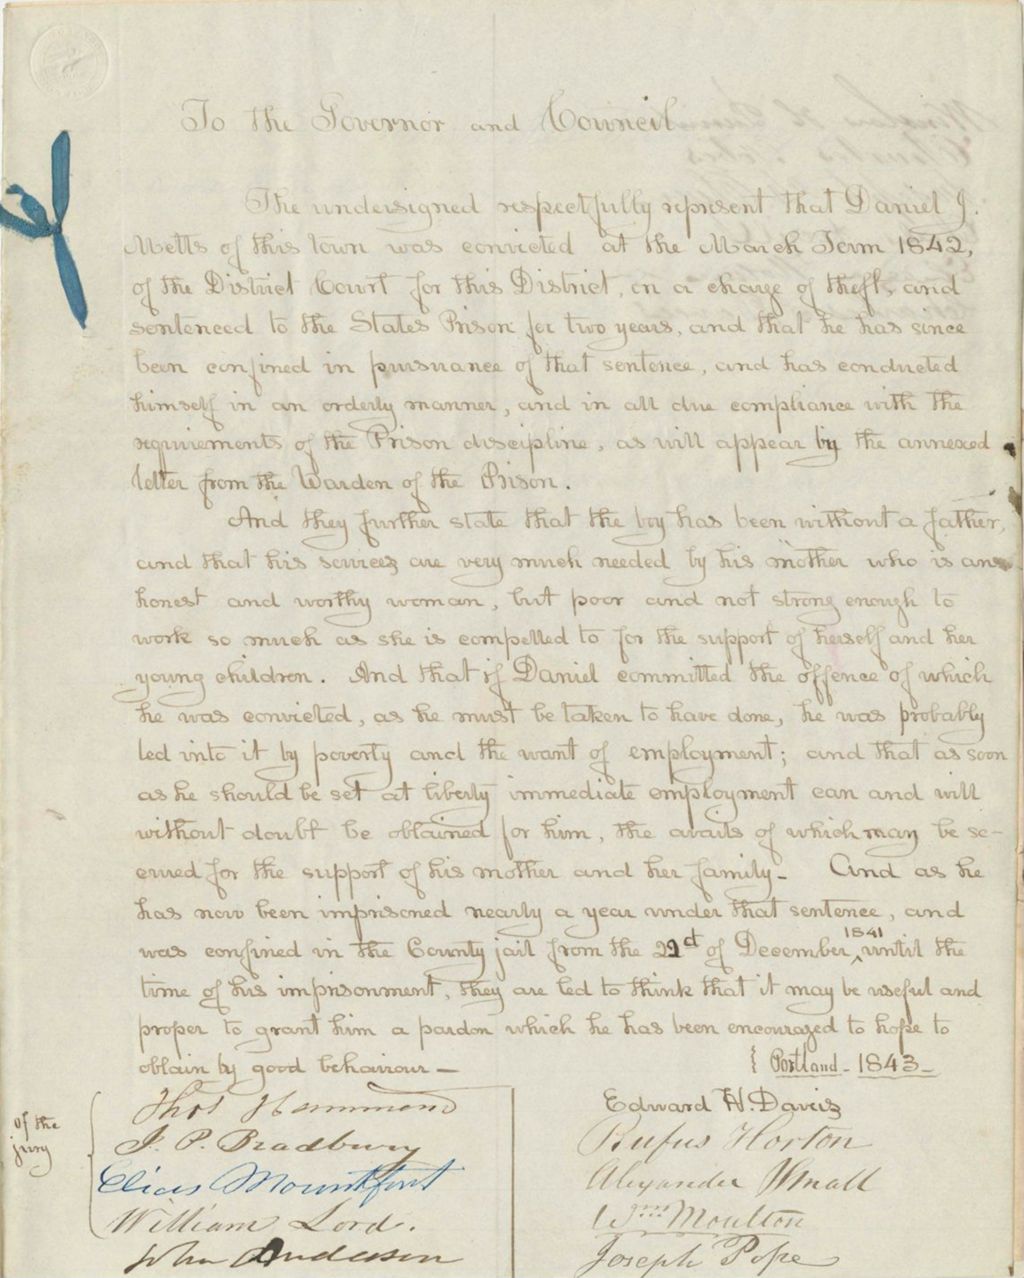 To the Governor and Council
The undersigned respectfully represent that Daniel J.
Metts of this town was convicted at the March Term 1842,
of the District Court for this District, on a charge of theft, and
sentenced to the States Prison for two years, and that he has since
been confined in pursuance of that sentence, and has conducted
himself in an orderly manner, and in all due compliance with the
requirements of the Prison discipline, as will appear by the annexed
letter from the Warden of the Prison.
And they further state that the boy has been without a father,
and that his services are very much needed by his mother who is an
honest and worthy woman, but poor and not strong enough to
work so much as she is compelled to for the support of herself and her
young children. And that if Daniel committed the offence of which
he was convicted, as he must be taken to have done, he was probably
led into it by poverty and the want of employment; and that as soon
as he should be set at liberty immediate employment can and will
without doubt be obtained for him, the avails of which may be se-
cured for the support of his mother and her family- And as he
has now been imprisoned nearly a year under that sentence, and
was confined in the County jail from the 22d of December, 1841 until the
time of his imprisonment, they are led to think that it may be useful and
proper to grant him a pardon which he has been encouraged to hope to
obtain by good behaviour -
Portland - 1843 -
of the
jury
Thos Hammond
J. P. Bradbury
Elias Mountfort
William Lord.
John Anderson
Edward H. Davies
Rufus Horton
Alexander Small
Wm Moulton
Joseph Pope